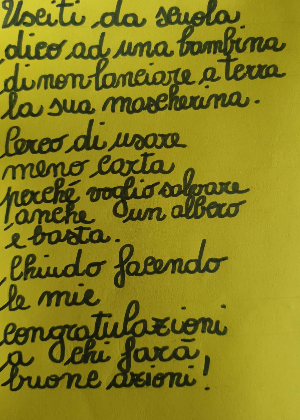 Usciti da scuola
dico ad una bambina
di non lanciare a terra
la sua mascherina.
Cerco di usare
meno carta
perché voglio salvare
anche un albero
e basta.
Chiudo facendo
le mie
congratulazioni
a chi farà
buone azioni!